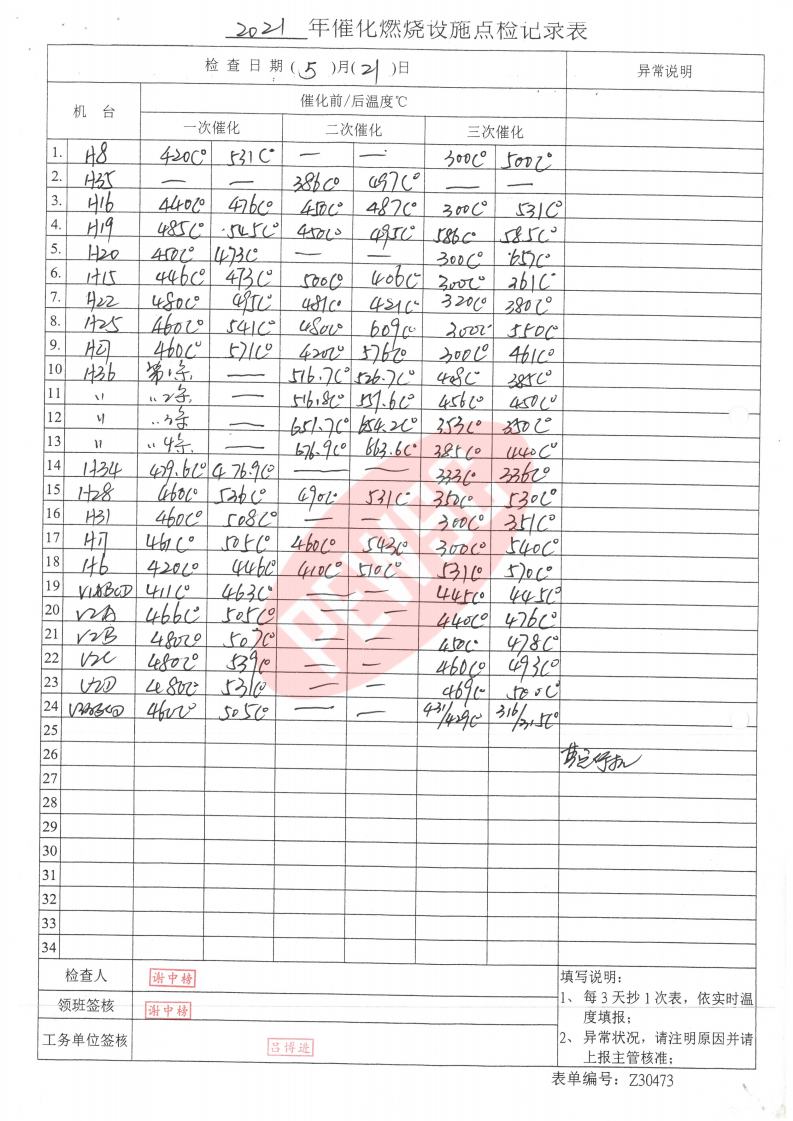 2021 年催化燃烧设施点检记录表
检查日期(5)月(21)日 异常说明
机台 催化前/后温度℃
一次催化 二次催化 三次催化
1. H8 420C° 531C° — — 300C° 500C°
2. H35 — — 386C° 497C° — —
3. H16 440C° 476C° 450C° 487C° 300C° 531C°
4. H19 485C° 545C° 450C° 495C° 586C° 585C°
5. H20 450C° 473C° — — 300C° 657C°
6. H15 446C° 473C° 500C° 406C° 300C° 361C°
7. H22 480C° 495C° 481C° 421C° 320C° 380C°
8. H25 460C° 541C° 480C° 609C° 300C° 550C°
9. 460C° 571C° 420C° 576C° 300C° 461C°
10 H36 第1条 — 516.7C° 526.7C° 385C°
11 〃 〃2条 — 516.8C° 456C° 450C°
12 〃 〃3条 — 651.7C° 654.2C° 353C° 350C°
13 〃 〃4条 — 676.9C° 663.6C° 385C° 440C°
14 H34 479.6C° 476.9C° — — 333C° 336C°
15 H28 460C° 526C° 490C° 531C° 350C° 530C°
16 H31 460C° 508C° — — 300C° 351C°
17 461C° 505C° 460C° 543C° 300C° 540C°
18 H6 420C° 446C° 410C° 510C° 531C° 570C°
19 V1ABCD 411C° 463C° — — 445C° 445C°
20 V2A 466C° 505C° — — 440C° 476C°
21 V2B 480C° 507C° — — 450C° 478C°
22 V2C 480C° 539C° — — 460C° 493C°
23 V2D 480C° 531C° — — 469C° 500C°
24 460C° 505C° — — 431/429C° 316/315C°
25
26
27
28
29
30
31
32
33
34
检查人 谢中榜 填写说明：
领班签核 谢中榜 1、每3天抄1次表，依实时温
度填报；
工务单位签核 吕博进 2、异常状况，请注明原因并请
上报主管核准；
表单编号：Z30473
PEWSC